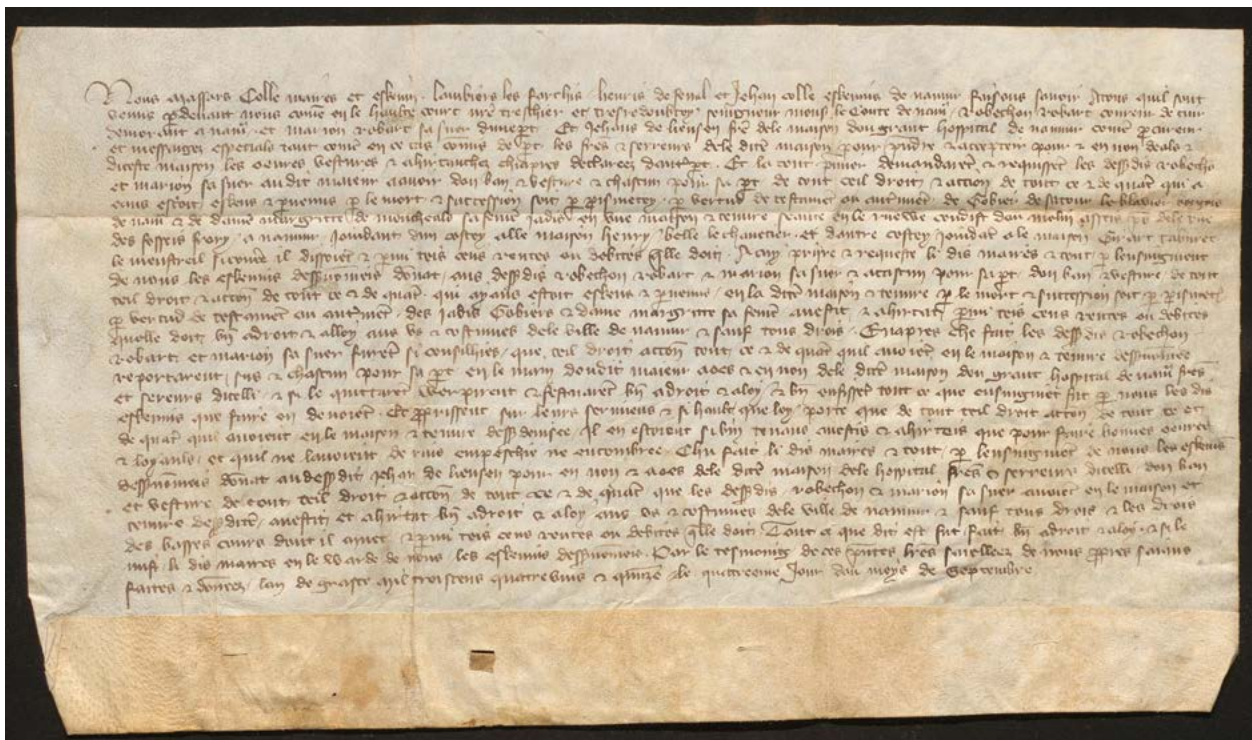 Nous massars Colle maires et eskevin. Lambiers les Parchis henris de fenal et Jehan colle eskevins de namur faisons savoir A tous quil sont
venus pdevant nous come en le haulte court nre treschier et tresredoubtey seingneur mons le Conte de nam robechon robart coureur de cuir
demorant a nam et marion robart sa suer dunept Et Jehans de liension fre dele maison dou grant hospital de namur come pcureur
et messages especials tant come en ce cas comis de pt les fres et serreurs dele dite maison pour prdre & accepter pour & en non dealz &
diceste maison les oevres vestures & ahirtanches chiapres declarees dautrept Et la tout pmier demandaret & requisset les dessdis robecho
et marion sa suer audit maieur avoir don ban & vesture & chascun pour sa pt de tout teil droit & action de tout ce & de quat qui a
eaus estoit eskeus & pvenus p le mort & succession soit p psimetey p vertud de testamet ou autmet de Gobier le blavier
de nam & de dame margritte de sa feme jadis en une maison & tenure seante en le rue condist dou molin
des fosseis flory a namur joindant dun costey alle maison henry belle le chavetier et dautre costey joindat a le maison Girart
le menestreil sicome il dissoiet & pmi teis cens rentes ou debites qlle doit A cuy priyre & requeste li dis maires & tout p lensengnment
de nous les eskevins dessnomeis donat aus dessdis robechon robart & marion sa suer & a chascun pour sa pt don ban & vesture de tout
teil droit & accon de tout ce & de quat qui a yaus estoit eskeus & pvenus en la dite maison & tenure p le mort & succession soit p psimetey
p vertud de testamet ou autmet des jadis Gobiers & dame margritte sa feme avestit & ahirtat pmi teis cens rentes ou debites
quelle doit bn adroit & alloy aus us & costumes dele ville de namur & sauf tous drois En apres che fait les dessdis robechon
robart et marion sa suer furet si consilhies que teil droit accon tout ce & de quat quil avoiet en le maison & tenure dessusdite
reportarent sus & chascun pour sa pt en le main doudit maieur aoes & en non dele dite maison dou grant hospital de nam fres
et sereurs dicelli & si le quittaret werpirent & festuaret bn adroit & aloy & bn enfisset tout ce que ensengniet fut p nous les dis
eskevins que faire en devoiet Et pprissent sur leurs seremens & si hault que loy porte que de tout teil droit accon de tout ce et
de quat quil avoient en le maison & tenure dess devisee il en estoient si bn tenans avestis & ahirteis que pour faire bonnes oevres
& loyauls et quil ne lavoient de riens empeschie ne encombre Chu fait li dis maires & tout p lensengniet de nous les eskevins
dessnomeis donat audessdit Jehan de liension pour en non & aoes dele dite maison dele hospital fres & serreurs dicelli don ban
et vesture de tout teil droit & accon de tout ce & de quat que les dessdis robechon & marion sa suer avoiet en le maison et
tenure dessdite avestit et ahirtat bn adroit & aloy aus us & costumes dele ville de namur & sauf tous drois & les drois
des basses cours dont il muet & pmi teis cens rentes ou debites qlle doit Tout ce que dit est fut fait bn adroit & aloy & si le
mist li dis maires en le warde de nous les eskevins dessnomeis Par le tesmoing de ces pntes lres saielleez de nous ppres saiauls
faites & donees lan de grasce mil troiscens quatrevins & quinze le quatreeme jour dou moys de Septembre